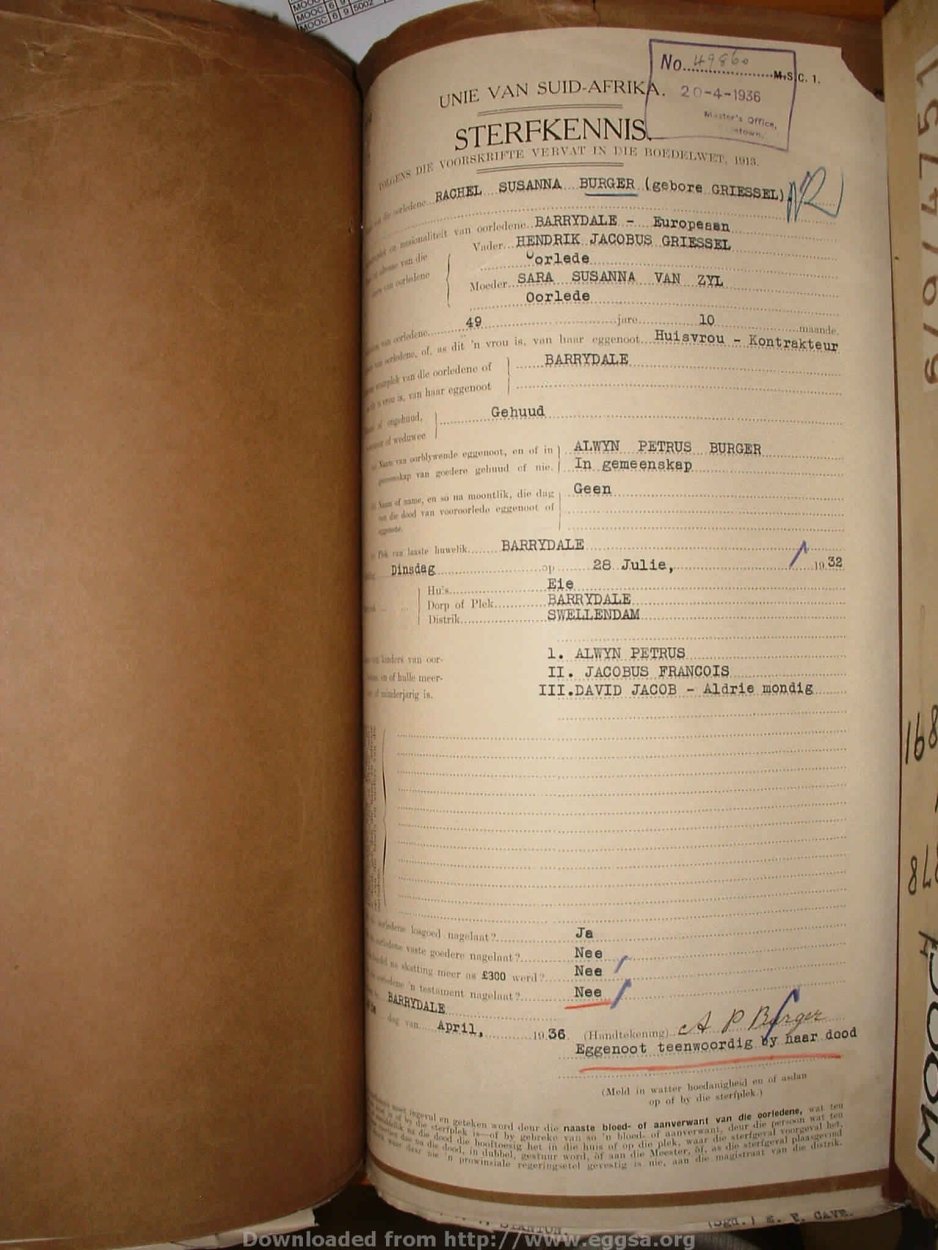 MOOC 6 9 5002
No. 49860
M.S.C. 1.
UNIE VAN SUID-AFRIKA.
20-4-1936
Master's Office,
STERFKENNIS.
VOLGENS DIE VOORSKRIFTE VERVAT IN DIE BOEDELWET, 1913.
RACHEL SUSANNA BURGER (gebore GRIESSEL)
nasionaliteit van oorledene BARRYDALE - Europeaan
Vader HENDRIK JACOBUS GRIESSEL
Oorlede
Moeder SARA SUSANNA VAN ZYL
Oorlede
van oorledene 49 jare 10 maande
oorledene, of, as dit 'n vrou is, van haar eggenoot Huisvrou - Kontrakteur
van die oorledene of BARRYDALE
vrou is, van haar eggenoot
of ongehuud, Gehuud
of weduwee
Naam van oorblywende eggenoot, en of in ALWYN PETRUS BURGER
gemeenskap van goedere gehuud of nie. In gemeenskap
Naam of name, en so na moontlik, die dag Geen
van die dood van vooroorlede eggenoot of
eggenote.
Plek van laaste huwelik BARRYDALE
Dinsdag op 28 Julie, 1932
Huis Eie
Dorp of Plek BARRYDALE
Distrik SWELLENDAM
kinders van oor- 1. ALWYN PETRUS
en of hulle meer- II. JACOBUS FRANCOIS
of minderjarig is. III. DAVID JACOB - Aldrie mondig
oorledene losgoed nagelaat? Ja
oorledene vaste goedere nagelaat? Nee
na skatting meer as £300 werd? Nee
oorledene 'n testament nagelaat? Nee
BARRYDALE
dag van April, 1936 (Handtekening) A P Burger
Eggenoot teenwoordig by haar dood
(Meld in watter hoedanigheid en of asdan
op of by die sterfplek.)
moet ingevul en geteken word deur die naaste bloed- of aanverwant van die oorledene, wat ten
is of by die sterfplek is—of by gebreke van so 'n bloed- of aanverwant, deur die persoon wat ten
na die dood die hooftoesig het in die huis of op die plek, waar die sterfgeval voorgeval het,
na die dood, in dubbel, gestuur word, òf aan die Meester, òf, as die sterfgeval plaasgevind
waar nie 'n provinsiale regeringsetel gevestig is nie, aan die magistraat van die distrik.
STANTON
(Sgn.) E. F. CAVE.
6/9/4751
168
MOOC
Downloaded from http://www.eggsa.org